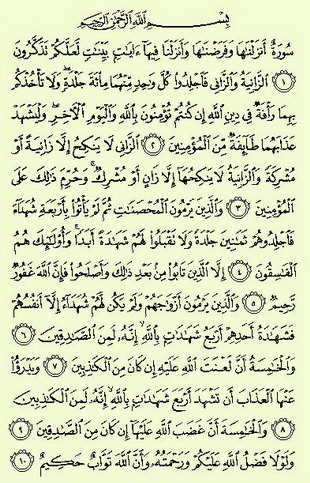 بِسْمِ اللَّهِ الرَّحْمَٰنِ الرَّحِيمِ
سُورَةٌ أَنزَلْنَٰهَا وَفَرَضْنَٰهَا وَأَنزَلْنَا فِيهَآ ءَايَٰتٍۭ بَيِّنَٰتٍ لَّعَلَّكُمْ تَذَكَّرُونَ
١ ٱلزَّانِيَةُ وَٱلزَّانِى فَٱجْلِدُوا۟ كُلَّ وَٰحِدٍ مِّنْهُمَا مِا۟ئَةَ جَلْدَةٍ وَلَا تَأْخُذْكُم
بِهِمَا رَأْفَةٌ فِى دِينِ ٱللَّهِ إِن كُنتُمْ تُؤْمِنُونَ بِٱللَّهِ وَٱلْيَوْمِ ٱلْءَاخِرِ وَلْيَشْهَدْ
عَذَابَهُمَا طَآئِفَةٌ مِّنَ ٱلْمُؤْمِنِينَ ٢ ٱلزَّانِى لَا يَنكِحُ إِلَّا زَانِيَةً أَوْ
مُشْرِكَةً وَٱلزَّانِيَةُ لَا يَنكِحُهَآ إِلَّا زَانٍ أَوْ مُشْرِكٌ وَحُرِّمَ ذَٰلِكَ عَلَى
ٱلْمُؤْمِنِينَ ٣ وَٱلَّذِينَ يَرْمُونَ ٱلْمُحْصَنَٰتِ ثُمَّ لَمْ يَأْتُوا۟ بِأَرْبَعَةِ شُهَدَآءَ
فَٱجْلِدُوهُمْ ثَمَٰنِينَ جَلْدَةً وَلَا تَقْبَلُوا۟ لَهُمْ شَهَٰدَةً أَبَدًا وَأُو۟لَٰٓئِكَ هُمُ
ٱلْفَٰسِقُونَ ٤ إِلَّا ٱلَّذِينَ تَابُوا۟ مِنۢ بَعْدِ ذَٰلِكَ وَأَصْلَحُوا۟ فَإِنَّ ٱللَّهَ غَفُورٌ
رَّحِيمٌ ٥ وَٱلَّذِينَ يَرْمُونَ أَزْوَٰجَهُمْ وَلَمْ يَكُن لَّهُمْ شُهَدَآءُ إِلَّآ أَنفُسُهُمْ
فَشَهَٰدَةُ أَحَدِهِمْ أَرْبَعُ شَهَٰدَٰتٍۭ بِٱللَّهِ إِنَّهُۥ لَمِنَ ٱلصَّٰدِقِينَ ٦
وَٱلْخَٰمِسَةُ أَنَّ لَعْنَتَ ٱللَّهِ عَلَيْهِ إِن كَانَ مِنَ ٱلْكَٰذِبِينَ ٧ وَيَدْرَؤُا۟
عَنْهَا ٱلْعَذَابَ أَن تَشْهَدَ أَرْبَعَ شَهَٰدَٰتٍۭ بِٱللَّهِ إِنَّهُۥ لَمِنَ ٱلْكَٰذِبِينَ
٨ وَٱلْخَٰمِسَةَ أَنَّ غَضَبَ ٱللَّهِ عَلَيْهَآ إِن كَانَ مِنَ ٱلصَّٰدِقِينَ ٩
وَلَوْلَا فَضْلُ ٱللَّهِ عَلَيْكُمْ وَرَحْمَتُهُۥ وَأَنَّ ٱللَّهَ تَوَّابٌ حَكِيمٌ ١٠